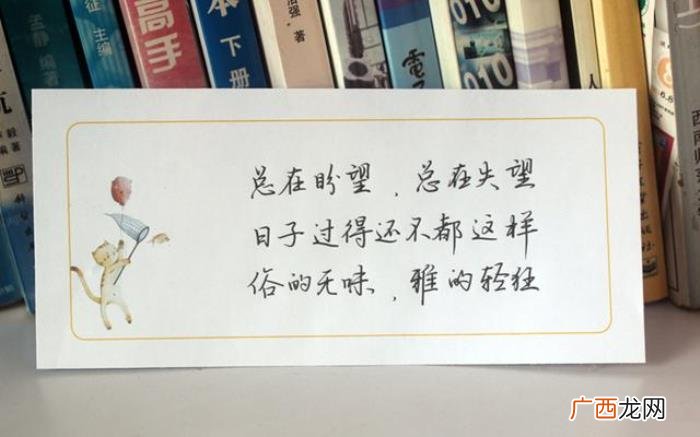 高手
本
下册
孟静 编著
征 主编
洁强 著
毅 编著
電子
010
010
人
总在盼望，总在失望
日子过得还不都这样
俗的无味，雅的轻狂
广西龙网